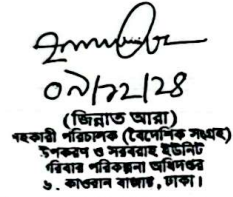 ০৯/১২/২৪
(জিন্নাত আরা)
সহকারী পরিচালক (বৈদেশিক সংগ্রহ)
উপকরণ ও সরবরাহ ইউনিট
পরিবার পরিকল্পনা অধিদপ্তর
৬, কাওরান বাজার, ঢাকা।